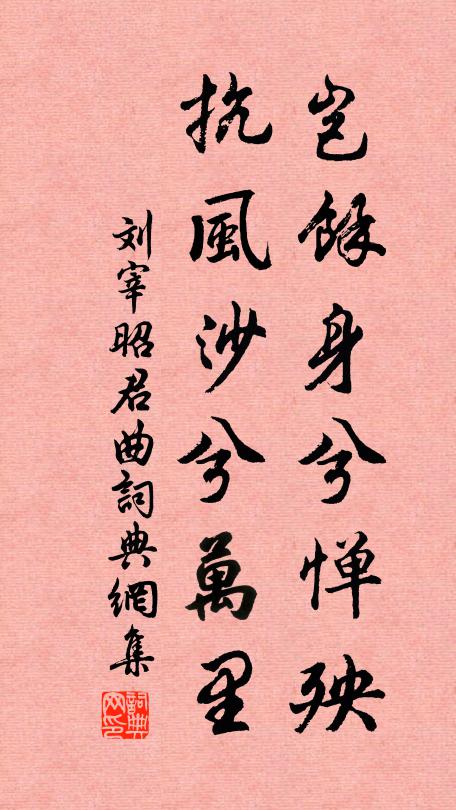 岂馀身兮惮殃
抗風沙兮萬里
刘宰昭君曲詞典網集
詞典网印